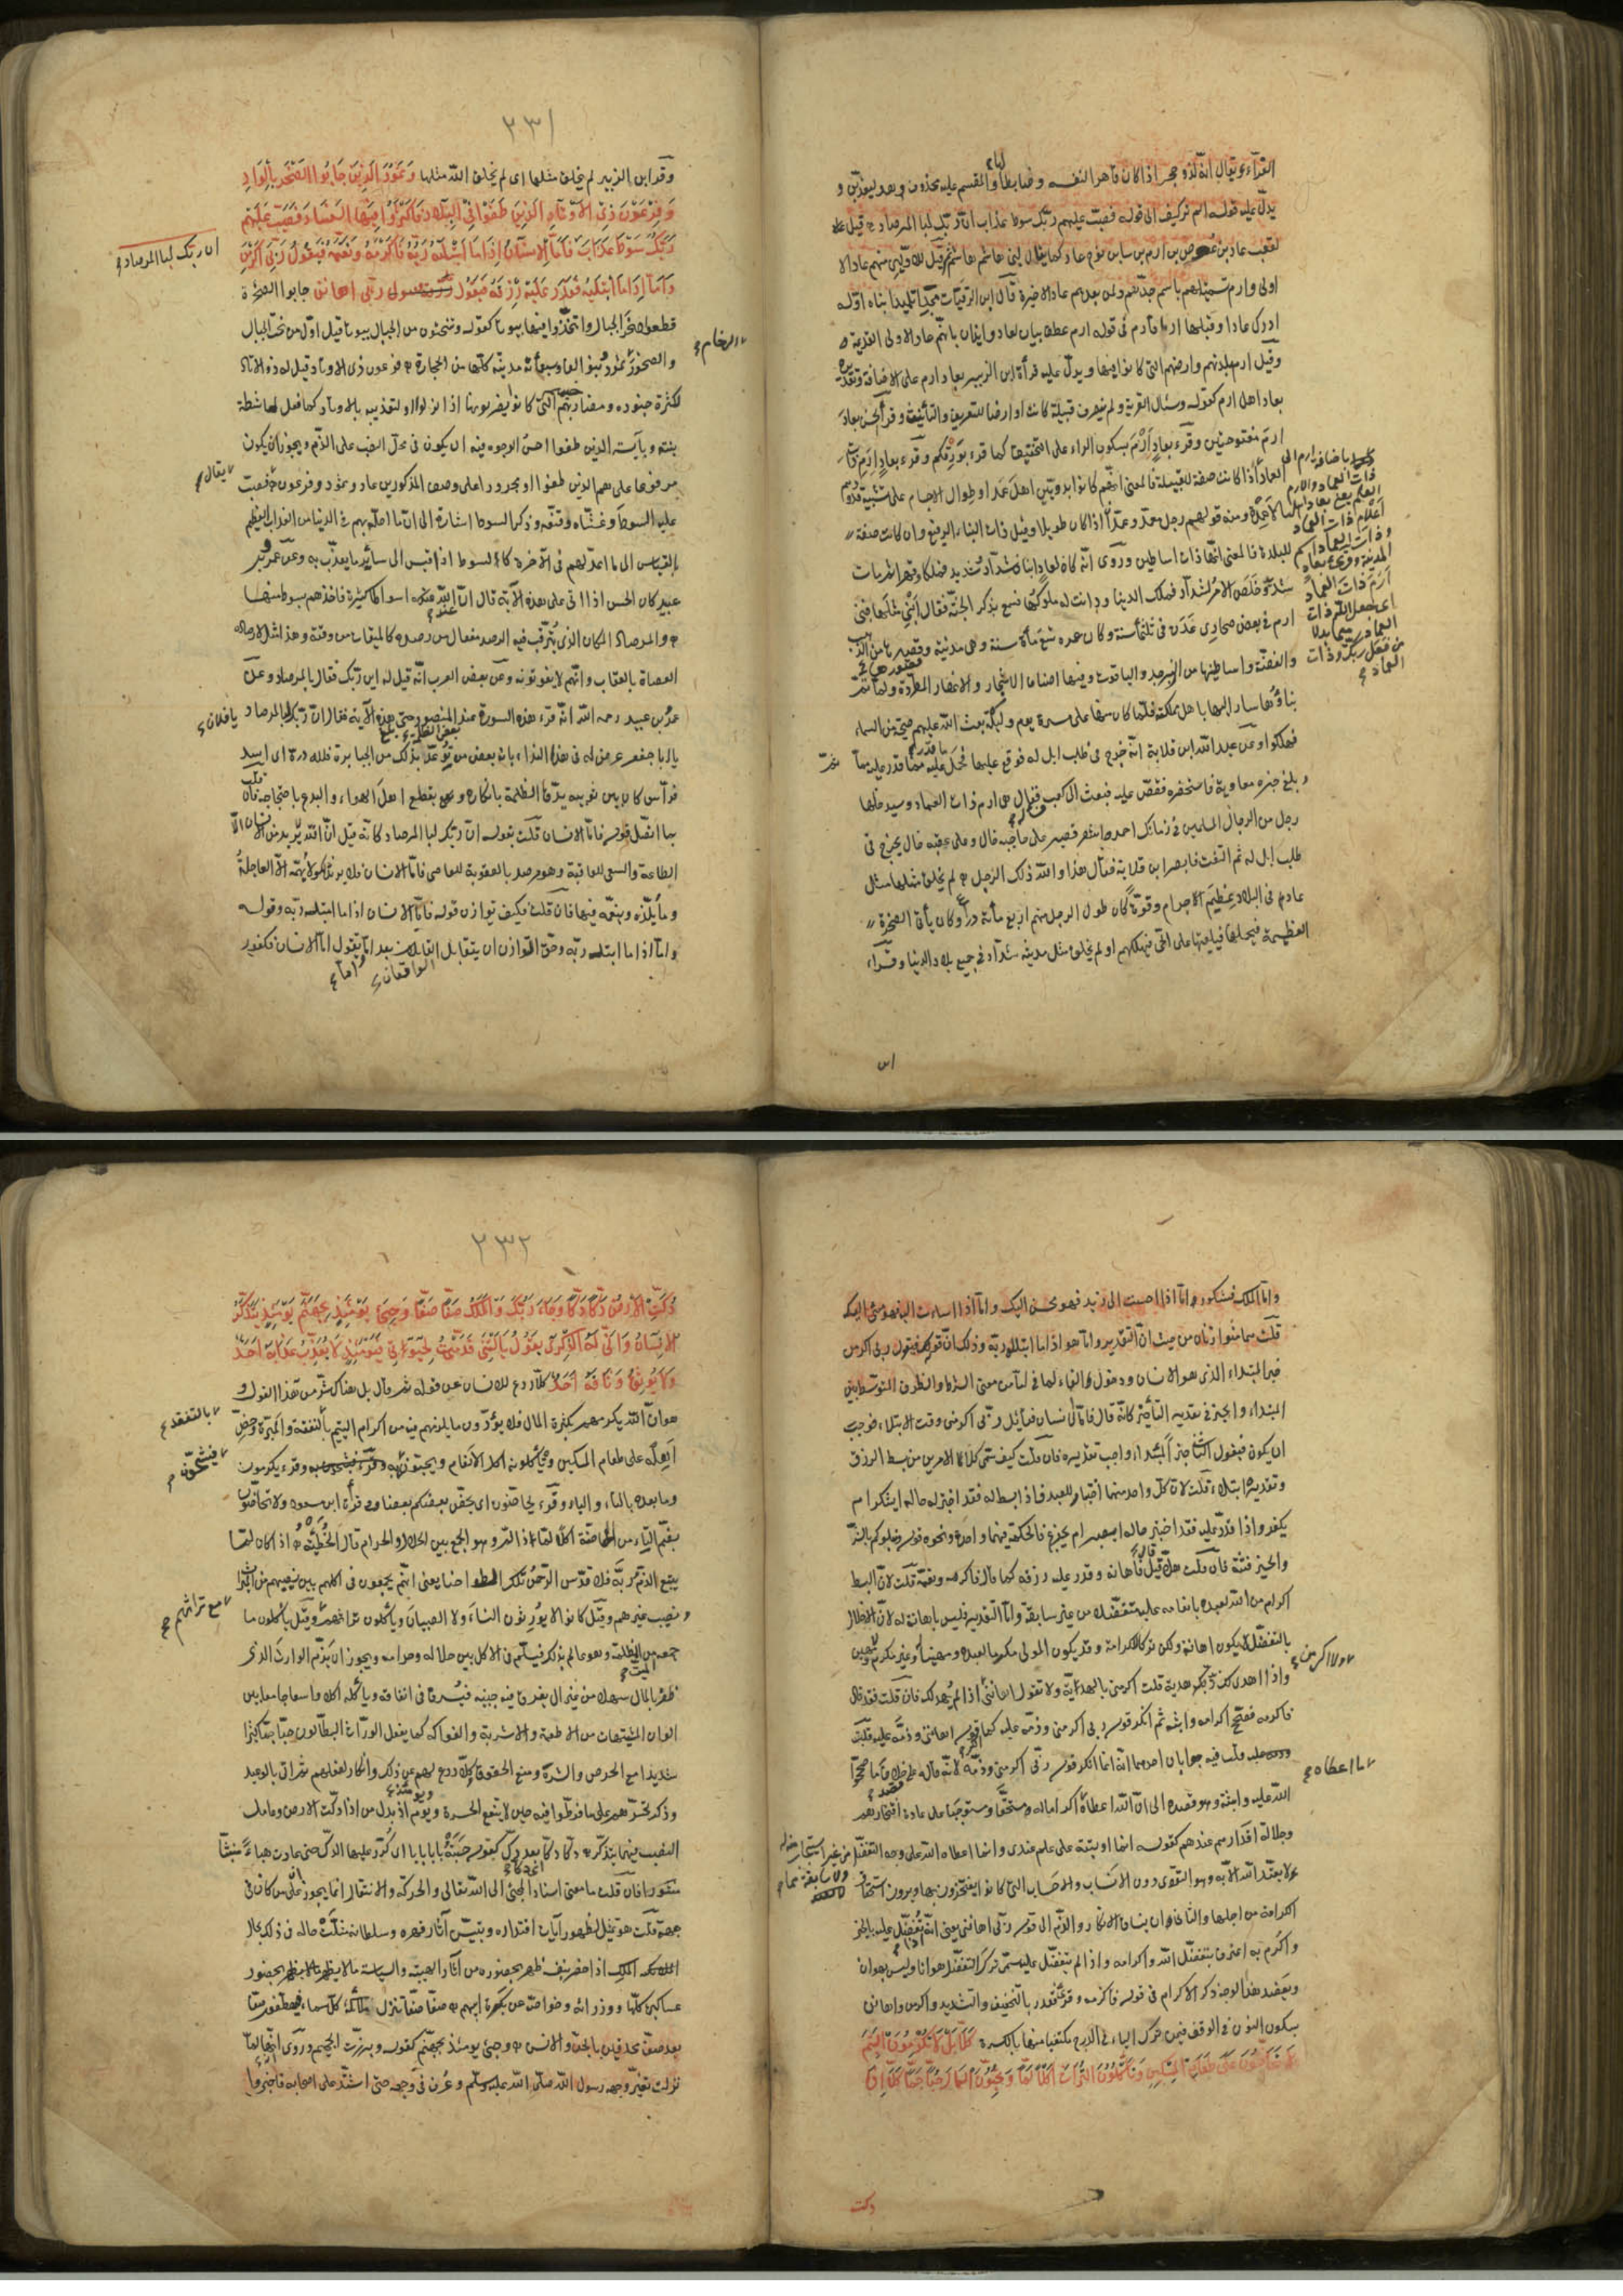 الفرّاء يقال انه لذو حجر اذا كان قاهرا لنفسه وضابطا لها والمقسم عليه محذوف وهو ليعذبن و
يدل عليه قوله الم تر كيف الى قوله فصبّ عليهم ربك سوط عذاب ان ربك لبالمرصاد قيل
لعقب عاد بن عوص بن ارم بن سام بن نوح عاد كما يقال لبنى هاشم هاشم ثم قيل للاولين منهم عاد الا
اولى وارم تسمية لهم باسم جدهم ولمن بعدهم عاد الاخيرة قال ابن الرقيات مجدا تليدا بناه اوّله
ادرك عادا وقبلها ارما فارم فى قوله ارم عطف بيان لعاد وايذان بانهم عاد الاولى القديمة
وقيل ارم بلدتهم وارضهم التى كانوا فيها ويدل عليه قرأة ابن الزبير بعاد ارم على الاضافة وتقديره
بعاد اهل ارم كقوله وسئل القرية ولم تنصرف قبيلة كانت او ارضا للتعريف والتأنيث وقرأ الحسن بعاد
ارم مفتوحتين وقرء بعاد ارم بسكون الراء على التخفيف كما قرء بورقكم وقرء بعاد ارم ذات
العماد اذا كانت صفة للقبيلة فالمعنى انهم كانوا بدويين اهل عمد او طوال الاجسام على تشبيه قدودهم
بالاعمدة ومنه قولهم رجل معمد وعمدان اذا كان طويلا وقيل ذات البناء الرفيع وان كانت صفة
للبلدة فالمعنى انها ذات اساطين وروى انه كان لعاد ابنان شداد وشديد فملكا وقهرا ثم مات
شديد وخلص الامر لشداد فملك الدنيا ودانت له ملوكها فسمع بذكر الجنة فقال ابنى مثلها فبنى
ارم فى بعض صحارى عدن فى ثلثمائة سنة وكان عمره تسع مأة سنة وهى مدينة وقصورها من الذهب
والفضة واساطينها من الزبرجد والياقوت وفيها اصناف الاشجار والانهار المطردة ولما تم
بناؤها سار اليها باهل مملكته فلما كان منها على مسيرة يوم وليلة بعث الله عليهم صيحة من السماء
فهلكوا وعن عبد الله ابن قلابة انه خرج فى طلب ابل له فوقع عليها فحمل ما قدر عليه مما ثم
وبلغ خبره معاوية فاستحضره فقص عليه فبعث الى كعب فسأله فقال هى ارم ذات العماد وسيدخلها
رجل من المسلمين فى زمانك احمر اشقر قصير على حاجبه خال وعلى عقبه خال يخرج فى
طلب ابل له ثم التفت فابصر ابن قلابة فقال هذا والله ذلك الرجل لم يخلق مثلها مثل
عاد فى البلاد عظم اجرام وقوة كان طول الرجل منهم اربع مأة ذراع وكان يأتى الصخرة
العظيمة فيحملها فيلقيها على الحى فيهلكهم او لم يخلق مثل مدينة شداد فى جميع بلاد الدنيا وقراء
اس
٢٣١
وقرء ابن الزبير لم يخلق مثلها اى لم يخلق الله مثلها وَثَمُودَ الَّذِينَ جَابُوا الصَّخْرَ بِالْوَادِ
وَفِرْعَوْنَ ذِي الْأَوْتَادِ الَّذِينَ طَغَوْا فِي الْبِلَادِ فَأَكْثَرُوا فِيهَا الْفَسَادَ فَصَبَّ عَلَيْهِمْ
رَبُّكَ سَوْطَ عَذَابٍ فَأَمَّا الْإِنْسَانُ إِذَا مَا ابْتَلَاهُ رَبُّهُ فَأَكْرَمَهُ وَنَعَّمَهُ فَيَقُولُ رَبِّي أَكْرَمَنِ
ان ربك لبالمرصاد
وَأَمَّا إِذَا مَا ابْتَلَاهُ فَقَدَرَ عَلَيْهِ رِزْقَهُ فَيَقُولُ رَبِّي أَهَانَنِ جابوا الصخرة
قطعوا صخر الجبال واتخذوا فيها بيوتا كقوله وتنحتون من الجبال بيوتا قيل اول من نحت الجبال
والصخور ثمود وبنوا الفا وسبعمأة مدينة كلها من الحجارة وفرعون ذى الاوتاد قيل له ذو الاوتاد
والرخام
لكثرة جنوده ومضاربهم التى كانوا يضربونها اذا نزلوا او لتعذيبه بالاوتاد كما فعل بماشطة
بنته وبآسية الذين طغوا احسن الوجوه فيه ان يكون فى محل النصب على الذم ويجوز ان يكون
مرفوعا على هم الذين طغوا او مجرورا على وصف المذكورين عاد وثمود وفرعون فصبّ
يقال
عليه السوط وغشّاه وقنّعه وذكر السوط اشارة الى ان ما احلّه بهم فى الدنيا من العذاب العظيم
بالقياس الى ما اعدّ لهم فى الآخرة كالسوط اذا قيس الى سائر ما يعذب به وعن عمرو بن
عبيد كان الحسن اذا اتى على هذه الآية قال ان الله عنده اسواطا كثيرة فاخذهم بسوط منها
والمرصاد المكان الذى يترقب فيه الرصد مفعال من رصده كالميقات من وقته وهذا مثل لارصاده
العصاة بالعقاب وانهم لا يفوتونه وعن بعض العرب انه قيل له اين ربك فقال بالمرصاد وعن
عمرو بن عبيد رحمه الله انه قرء هذه السورة عند المنصور حتى بلغ هذه الآية فقال ان ربك لبالمرصاد
يا فلان
يا ابا جعفر عرض له فى هذا النداء بانه بعض من توعّد بذلك من الجبابرة فلله درّه اى اسد
فرّاس كان بين ثوبيه يدقّ الظلمة بانكاره ويقطع اهل الهواء والبدع باحتجاجه فان
بما اتصل قوله فاما الانسان قلت بقوله ان ربك لبالمرصاد كانه قيل ان الله لا يريد من الانسان الا
الطاعة والسعى للعاقبة وهو مرصد بالعقوبة للعاصى فاما الانسان فلا يريد ذلك ولا يهمه الا العاجلة
وما يلذّه وينعمه فيها فان قلت فكيف توازن قوله فاما الانسان اذا ما ابتلاه ربه وقوله
واما اذا ما ابتلاه ربه وحق التوازن ان يتقابل الواقعان بعد اما واما تقول اما الانسان فكفور
واما الملك فشكور واما اذا احسنت الى زيد فهو محسن اليك واما اذا اسأت اليه فهو مسئ اليك
قلت هما متوازنان من حيث ان التقدير واما هو اذا ما ابتلاه ربه وذلك ان قوله فيقول ربى اكرمن
خبر المبتداء الذى هو الانسان ودخول الفاء لما فى اما من معنى الشرط والظرف المتوسط بين
المبتداء والخبر فى تقدير التأخير كانه قال فاما الانسان فقائل ربى اكرمنى وقت الابتلاء فوجب
ان يكون فيقول الثانى خبر المبتداء واجب تقديره فان قلت كيف سمى كلا الامرين من بسط الرزق
وتقديره ابتلاء قلت لان كل واحد منهما اختبار للعبد فاذا بسط له فقد اختبر له حاله ايشكر ام
يكفر واذا قدر عليه فقد اختبر حاله ايصبر ام يجزع فالحكمة فيهما واحدة ونحوه قوله ونبلوكم بالشرّ
والخير فتنة فان قلت هلّا قال فاهانه وقدر عليه رزقه كما قال فاكرمه ونعّمه قلت لان البسط
اكرام من الله لعبده بانعامه عليه متفضلا من غير سابقة واما التقدير فليس باهانة له لان الاخلال
بالتفضل لا يكون اهانة ولكن تركا للكرامة وقد يكون المولى مكرما لعبده ومهينا وغير مكرم ولا مهين
واذا اهدى لك زيد هدية قلت اكرمنى بالهدية ولا تقول اهاننى اذا لم يهد لك فان قلت فقد قال
فاكرمه فصحّح اكرامه واثبته ثم انكر قوله ربى اكرمنى وذمّه عليه كما انكر قوله اهاننى وذمه عليه قلت
فيه جوابان احدهما انه انما انكر قوله ربى اكرمنى وذمّه لانه قاله على قصد خلاف ما صحّحه
ما اعطاه
الله عليه واثبته وهو قصده الى ان الله اعطاه اكراما له مستحقا ومستوجبا على عادة افتخارهم
وجلالة اقدارهم عندهم كقوله انما اوتيته على علم عندى وانما اعطاه الله على وجه التفضل من غير استيجاب منه له
ولا سابقة مما لا يعتد الله الا به وهو التقوى دون الانساب والاحساب التى كانوا يفتخرون بها ويرون استحقاق
الكرامة من اجلها والثانى ان ينساق الانكار والذم الى قوله ربى اهاننى يعنى انه اذا تفضل عليه بالخير
واكرم به اعترف بتفضل الله واكرامه واذا لم يتفضل عليه سمّى ترك التفضل هوانا وليس بهوان
ويعضد هذا الوجه ذكر الاكرام فى قوله فاكرمه وقرئ فقدر بالتخفيف والتشديد واكرمن واهانن
بسكون النون فى الوقف فيمن ترك الياء فى الدرج مكتفيا منها بالكسرة كَلَّا بَلْ لَا تُكْرِمُونَ الْيَتِيمَ
وَلَا تَحَاضُّونَ عَلَى طَعَامِ الْمِسْكِينِ وَتَأْكُلُونَ التُّرَاثَ أَكْلًا لَمًّا وَتُحِبُّونَ الْمَالَ حُبًّا جَمًّا كَلَّا إِذَا
دكت
٢٣٢
دُكَّتِ الْأَرْضُ دَكًّا دَكًّا وَجَاءَ رَبُّكَ وَالْمَلَكُ صَفًّا صَفًّا وَجِيءَ يَوْمَئِذٍ بِجَهَنَّمَ يَوْمَئِذٍ يَتَذَكَّرُ
الْإِنْسَانُ وَأَنَّى لَهُ الذِّكْرَى يَقُولُ يَا لَيْتَنِي قَدَّمْتُ لِحَيَاتِي فَيَوْمَئِذٍ لَا يُعَذِّبُ عَذَابَهُ أَحَدٌ
وَلَا يُوثِقُ وَثَاقَهُ أَحَدٌ كلا ردع للانسان عن قوله ثم قال بل هناك شر من هذا القول و
هو ان الله يكرمهم بكثرة المال فلا يؤدّون ما يلزمهم فيه من اكرام اليتيم بالتفقد والمبرة وحض
بالتفقد
اهله على طعام المسكين ويأكلونه اكل الانعام ويحبونه فيشحون به وقرء يكرمون
فيشحون
وما بعده بالياء والتاء وقرء تحاضون اى يحض بعضكم بعضا وفى قرأة ابن مسعود ولا تحاضون
بضم التاء من المحاضة اكلا لما ذا لم وهو الجمع بين الحلال والحرام قال الحطيئة اذا كان لما
يتبع الذم ربه فلا قدس الرحمن تلك الطواحنا يعنى انهم يجمعون فى اكلهم بين نصيبهم من الميراث
ونصيب غيرهم وقيل كانوا لا يورثون النساء ولا الصبيان ويأكلون تراثهم وقيل يأكلون ما
مع تراثهم
جمعه الميت من الظلمة وهو عالم بذلك فيلمّ فى الاكل بين حلاله وحرامه ويجوز ان يذم الوارث الذى
ظفر بالمال سهلا من غير ان يعرق فيه جبينه فيسرف فى انفاقه ويأكله اكلا واسعا جامعا بين
الوان المشتهيات من الاطعمة والاشربة والفواكه كما يفعل الورّاث البطّالون حبّا جمّا كثيرا
شديدا مع الحرص والشره ومنع الحقوق كلا ردع لهم عن ذلك وانكار لفعلهم ثم اتى بالوعيد
وذكر تحسرهم على ما فرطوا فيه حين لا تنفع الحسرة ويومئذ بدل من اذا دكت الارض وعامل
النصب فيهما يتذكر دكا دكا دكا بعد دك كقوله حسبته بابا بابا اى كرر عليها الدك حتى عادت هباء منبثا
فان قلت ما معنى اسناد المجئ الى الله تعالى والحركة والانتقال انما يجوزان على من كان فى
جهة قلت هو تمثيل لظهور آيات اقتداره وتبيين آثار قهره وسلطانه مثلت حاله فى ذلك بحال
الملك اذا حضر بنفسه ظهر بحضوره من آثار الهيبة والسياسة ما لا يظهر بحضور
عساكره كلها ووزرائه وخواصه عن بكرة ابيهم صفا صفا تنزل ملائكة كل سماء فيصطفون صفا
بعد صف محدقين بالجن والانس وجئ يومئذ بجهنم كقوله وبرزت الجحيم وروى انها لما
نزلت تغير وجه رسول الله صلى الله عليه وسلم وعرف فى وجهه حتى اشتد على اصحابه فاخبروا